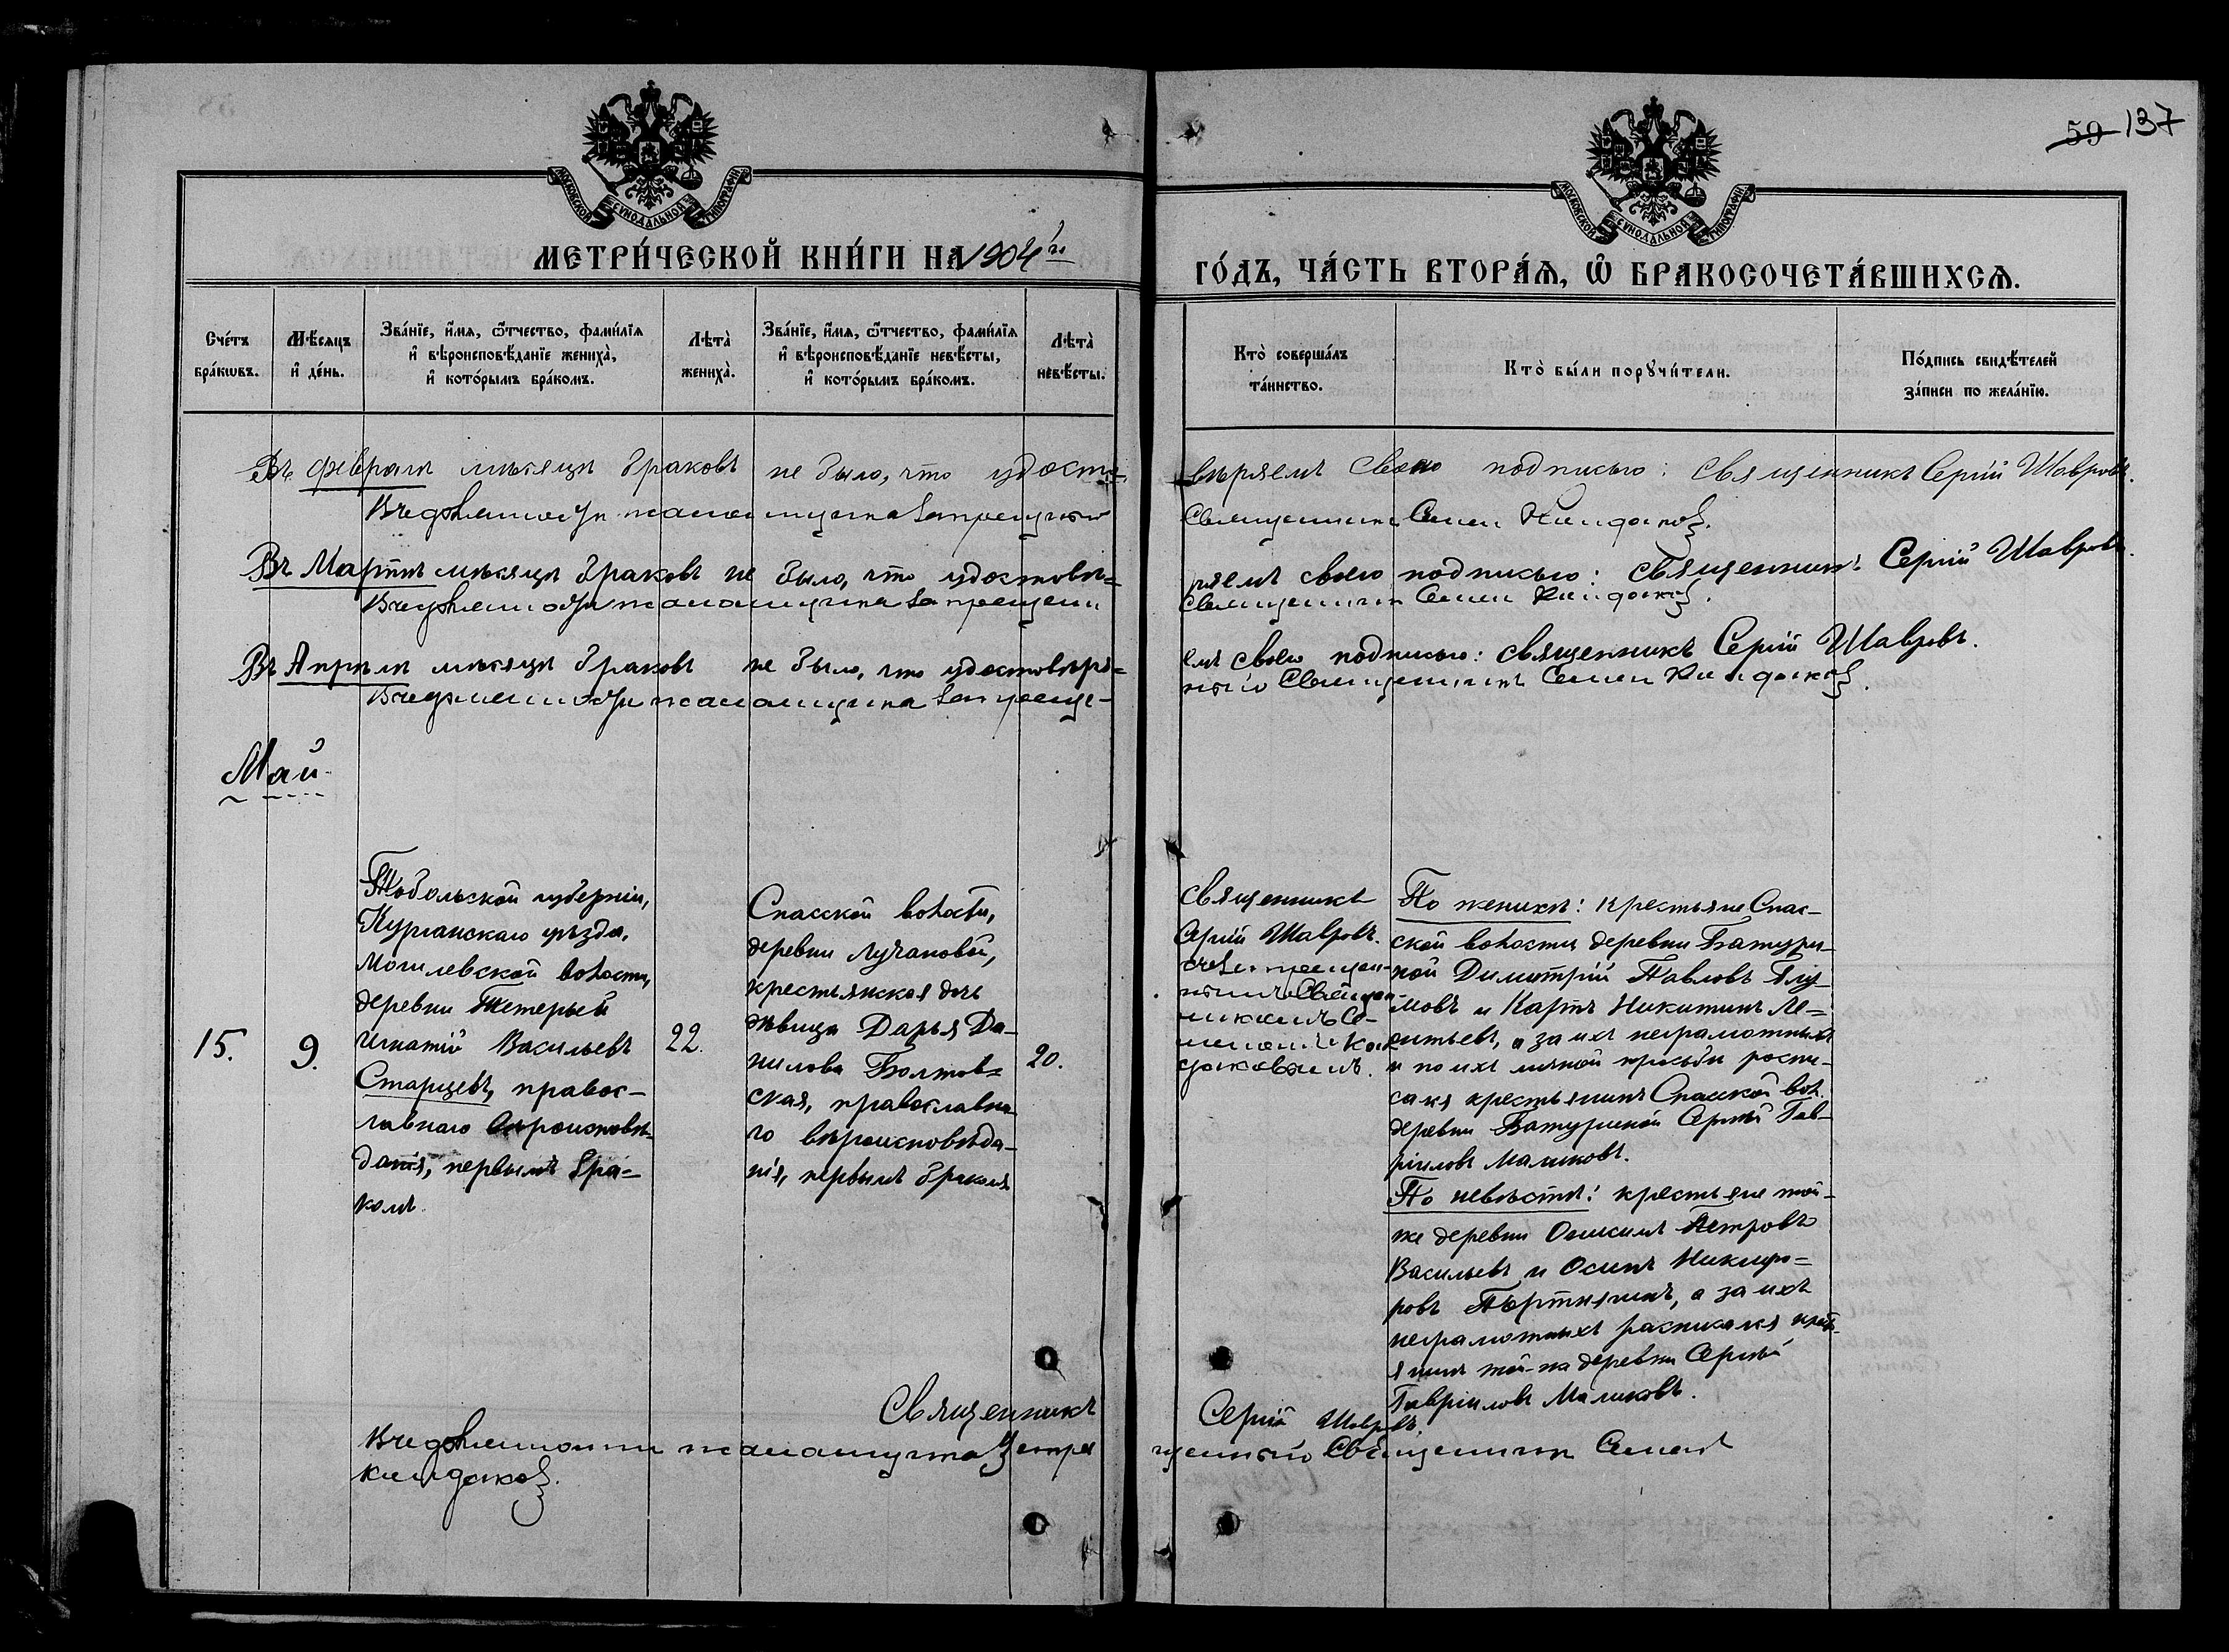 59 137
МОСКОВСКОЙ СѴНОДАЛЬНОЙ ТИПОГРАФІИ
МОСКОВСКОЙ СѴНОДАЛЬНОЙ ТИПОГРАФІИ
МЕТРИ́ЧЕСКОЙ КНИ́ГИ НА 1904й
ГО́ДЪ, ЧА́СТЬ ВТОРА́Ѧ, Ѽ БРАКОСОЧЕТА́ВШИХСѦ.
Сче́тъ бра́кѡвъ.
Мѣ́сѧцъ и҆ де́нь.
Зва́нїе, и҆́мѧ, ѻ҆́тчество, фами́лїѧ и҆ вѣроисповѣ́данїе жениха̀, и҆ кото́рымъ бра́комъ.
Лѣта̀ жениха̀.
Зва́нїе, и҆́мѧ, ѻ҆́тчество, фами́лїѧ и҆ вѣроисповѣ́данїе невѣ́сты, и҆ кото́рымъ бра́комъ.
Лѣта̀ невѣ́сты.
Кто̀ соверша́лъ та́инство.
Кто̀ бы́ли порꙋчи́тели.
По́дпись свидѣ́телей за́писи по жела́нїю.
Въ февралѣ мѣсяцѣ браковъ не было, что удосто-
вѣряемъ свою подписью: священникъ Сергій Шавровъ.
Священникъ Семен
Въ Мартѣ мѣсяцѣ браковъ не было, что удостовѣ=
ряемъ свою подписью: священникъ Сергій Шавровъ.
Священникъ Семен
Въ Апрѣлѣ мѣсяцѣ браковъ не было, что удостовѣря=
емъ свою подписью: священникъ Сергій Шавровъ.
Священникъ Семен
Май
15.
9.
Тобольской губерніи,
Курганскаго уѣзда,
Могилевской волости,
деревни Тетерьей
Игнатій Васильевъ
Старцевъ, правос-
лавнаго вѣроисповѣ-
данія, первымъ бра=
комъ.
22.
Спасской волости,
деревни Лучановой,
крестьянская дочь
дѣвица Дарья Да-
нилова Болтов=
ская, православна-
го вѣроисповѣда-
нія, первымъ бракомъ
20.
Священникъ
Сергій Шавровъ.
По женихѣ: крестьяне Спас-
ской волости деревни Батури-
ной Димитрій Павловъ Глу-
мовъ и Карпъ Никитинъ Ле=
онтьевъ, а за ихъ неграмотныхъ
и по ихъ личной просьбѣ роспи-
сался крестьянинъ Спасской вол.
деревни Батуриной Сергѣй Гав-
ріиловъ Маликовъ.
По невѣстѣ: крестьяне той-
же деревни Петровъ
Васильевъ и Осипъ Никифо=
ровъ а за ихъ
неграмотныхъ расписался
янинъ той-же деревни Сергѣй
Гавріиловъ Маликовъ.
Священникъ Сергій Шавровъ.
Священникъ Семенъ